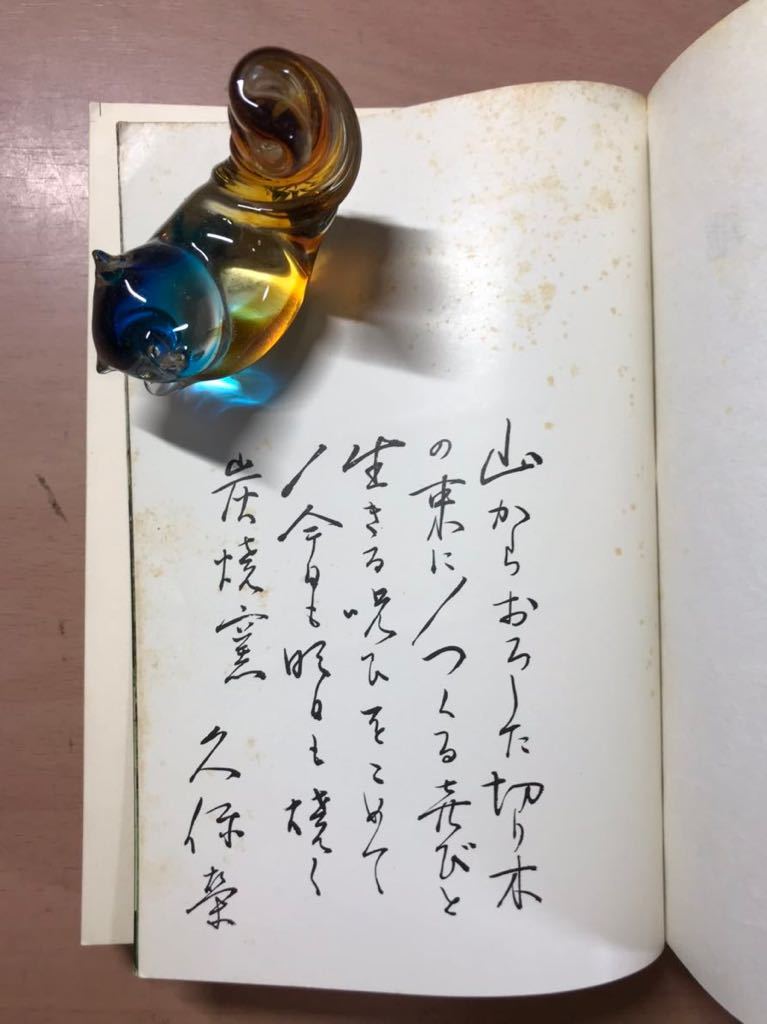 山からおろした切り木
の束に/つくる喜びと
生きる呪ひをこめて
/今日も明日も焼く
炭焼窯 久保榮